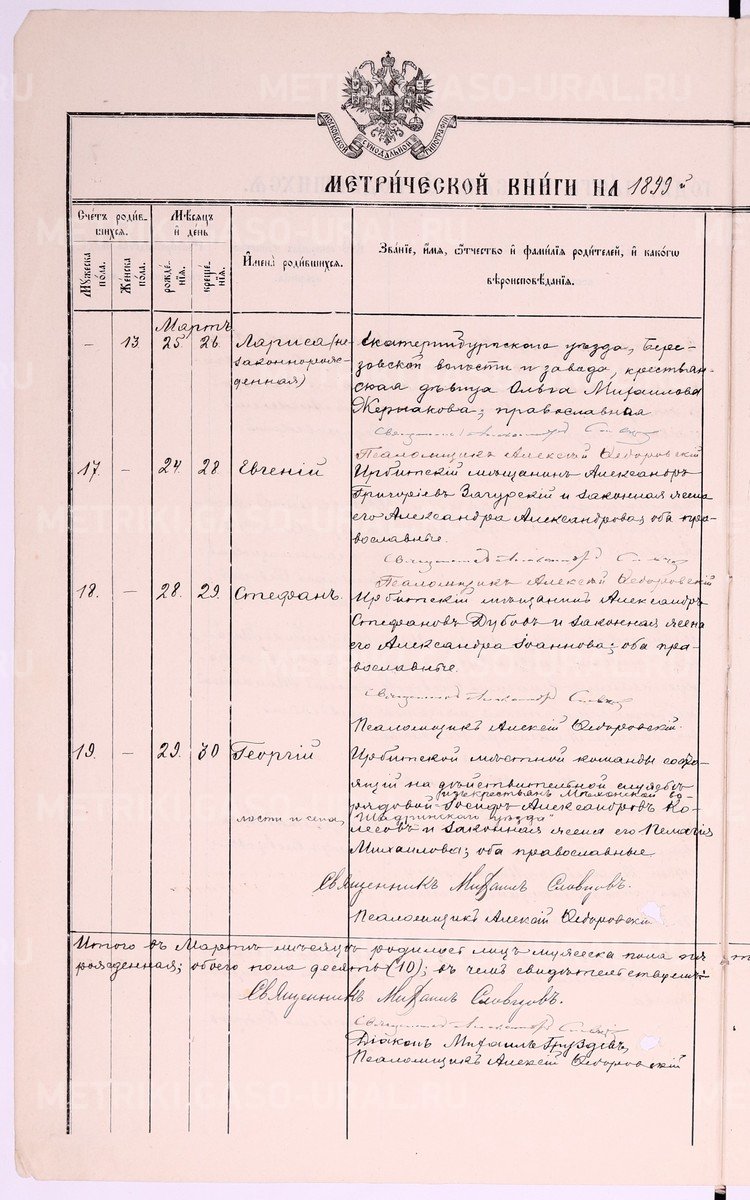 МОСКОВСКОЙ СѴНОДАЛЬНОЙ ТИПОГРАФІИ
МЕТРИ́ЧЕСКОЙ КНИ́ГИ НА 1899й
Сче́тъ роди́в-
шихся.
Мѣ́сяцъ
и҆ де́нь
И҆мена̀ роди́вшихся.
Зва́нїе, и҆́мя, ѻ҆́тчество и҆ фами́лїя роди́телей, и҆ како́гѡ
вѣроисповѣ́данїя.
Му́жеска по́ла.
Же́нска по́ла.
рожде́-нїя.
креще́-нїя.
Мартъ
– 13 25 26. Лариса (не-
законнорож-
денная)
Екатеринбургскаго уѣзда, Бере-
зовской волости и завода, крестьян-
ская дѣвица Ольга Михаилова
Жернакова; православная
Священникъ Александръ
Псаломщикъ Алексій Ѳедоровскій
17. – 24. 28. Евгеній
Ирбитскій мѣщанинъ Александръ
Григоріевъ Загурскій и законная жена
его Александра Александрова; оба пра-
вославные.
Священникъ Александръ
Псаломщикъ Алексій Ѳедоровскій
18. – 28. 29. Стефанъ.
Ирбитскій мѣщанинъ Александръ
Стефановъ Дубовъ и законная жена
его Александра Іоаннова; оба пра-
вославные.
Священникъ Александръ
Псаломщикъ Алексій Ѳедоровскій.
19. – 29. 30 Георгій
Ирбитской мѣстной команды состо-
ящій на дѣйствительной службѣ
изъ крестьянъ во-
рядовой Іосифъ Александровъ Ко-
лости и села, Шадринскаго уѣзда
лесовъ и законная жена его Пелагія
Михаилова; оба православные.
Священникъ Михаилъ Словцовъ.
Псаломщикъ Алексій Ѳедоровскій
Итого въ Мартѣ мѣсяцѣ родилось лицъ мужеска пола
рожденная; обоего пола десять (10); въ чемъ свидѣтельствуемъ:
Священникъ Михаилъ Словцовъ.
Священникъ Александръ
Діаконъ Михаилъ Груздевъ
Псаломщикъ Алексій Ѳедоровскій
METRIKI.GASO-URAL.RU